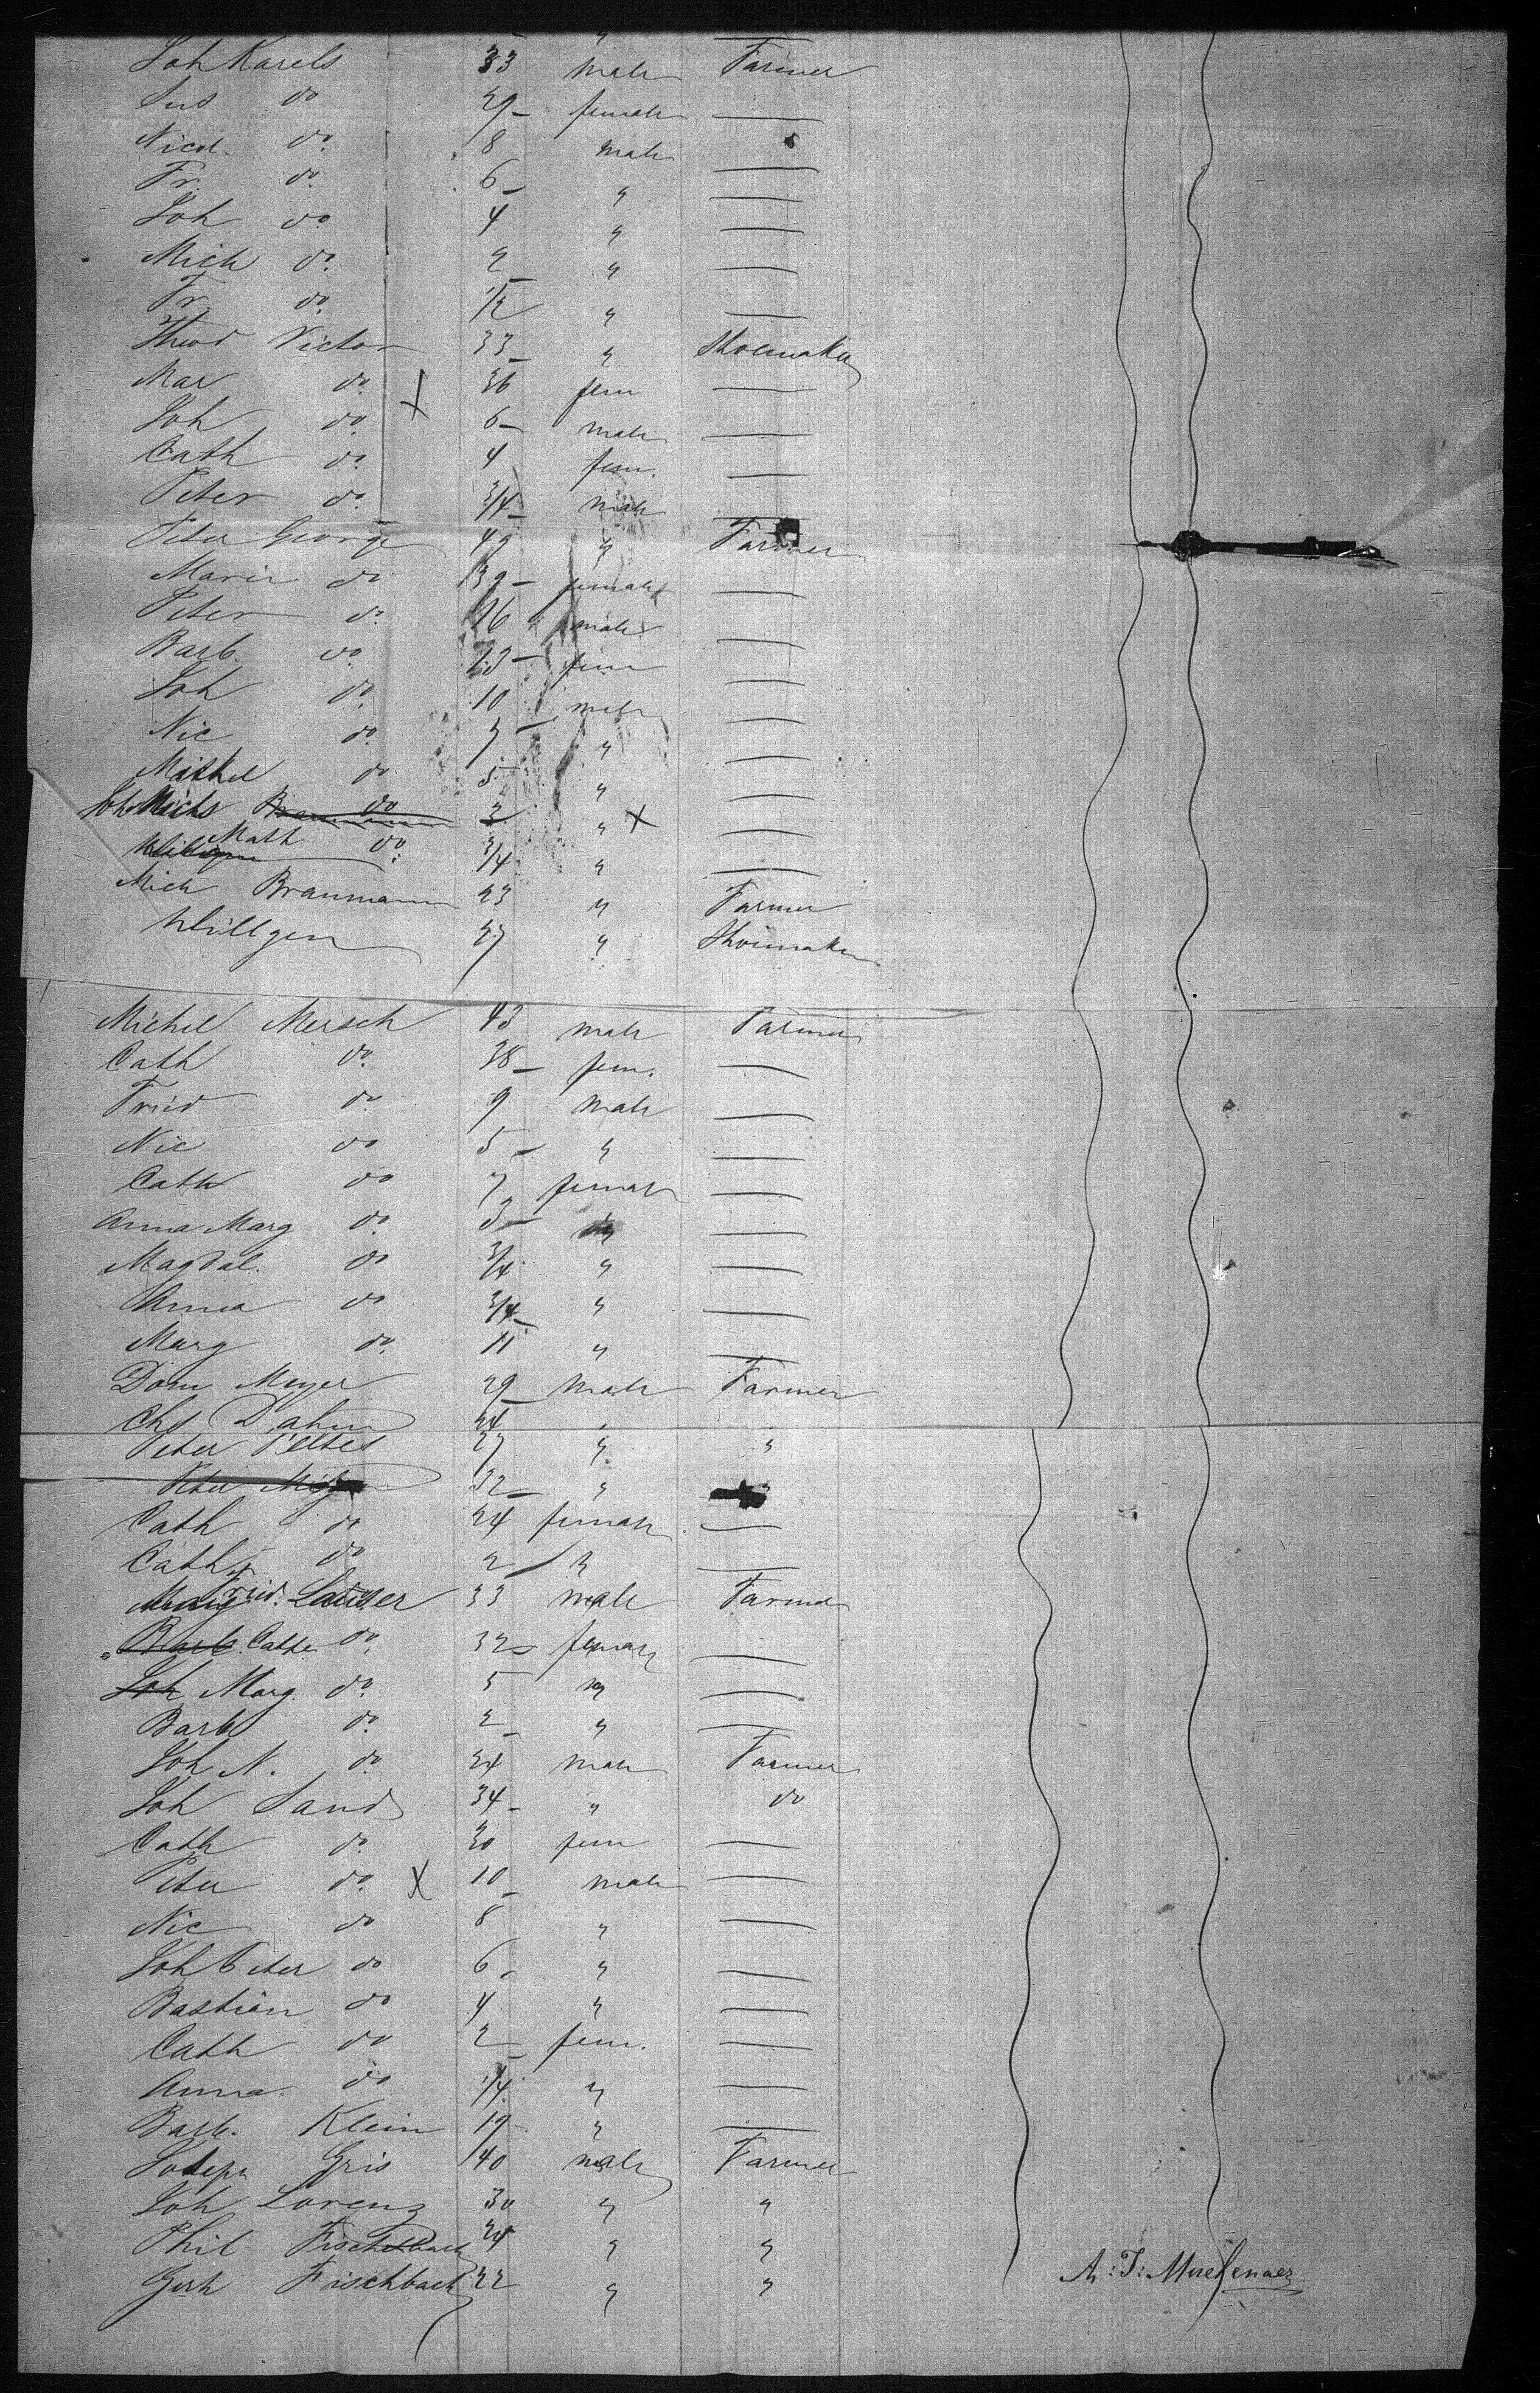 Joh Karels 33 male Farmer
Sus do 29 female —
Nicol. do 8 male —
Fr. do 6 " —
Joh do 4 " —
Mich do 2 " —
Fr. do 1/2 " —
Theod Victor 33 " Shoemaker
Mar do 36 fem —
Joh do 6 male —
Cath do 4 fem. —
Peter do 3/4 male —
Peter George 49 " Farmer
Marie do 39 female —
Peter do 16 male —
Barb. do 13 fem —
Joh do 10 male —
Nic do 7 " —
Michel do 5 " —
Joh Nichs do 3 " X —
Math do 3/4 " —
Mich Braumann 23 " Farmer
Willgen 27 " Shoemaker
Michel Mersch 43 male Farmer
Cath do 38 fem. —
Fried do 9 male —
Nic do 5 " —
Cath do 7 female —
Anna Marg do 3 " —
Magdal. do 3/4 " —
Anna do 3/4 " —
Marg do 11 " —
Dom Meyer 29 male Farmer
Chs Dahm 24 " "
Peter Peltes 27 " "
Peter 32 " "
Cath do 24 female —
Cath do 2 " —
Fried. Lauser 33 male Farmer
Barb. Cathe do 32 female —
Joh Marg. do 5 " —
Barb do 2 " —
Joh N. do 24 male Farmer
Joh Sand 34 " do
Cath do 30 fem —
Peter do X 10 male —
Nic do 8 " —
Joh Peter do 6 " —
Bastian do 4 " —
Cath do 2 fem. —
Anna do 1/4 " —
Barb. Klein 19 " —
Joseph Gris 40 male Farmer
Joh Lorenz 30 " "
Phil Fischbach 24 " "
Gerh Fischbach 22 " "
A: J: Muelenaer